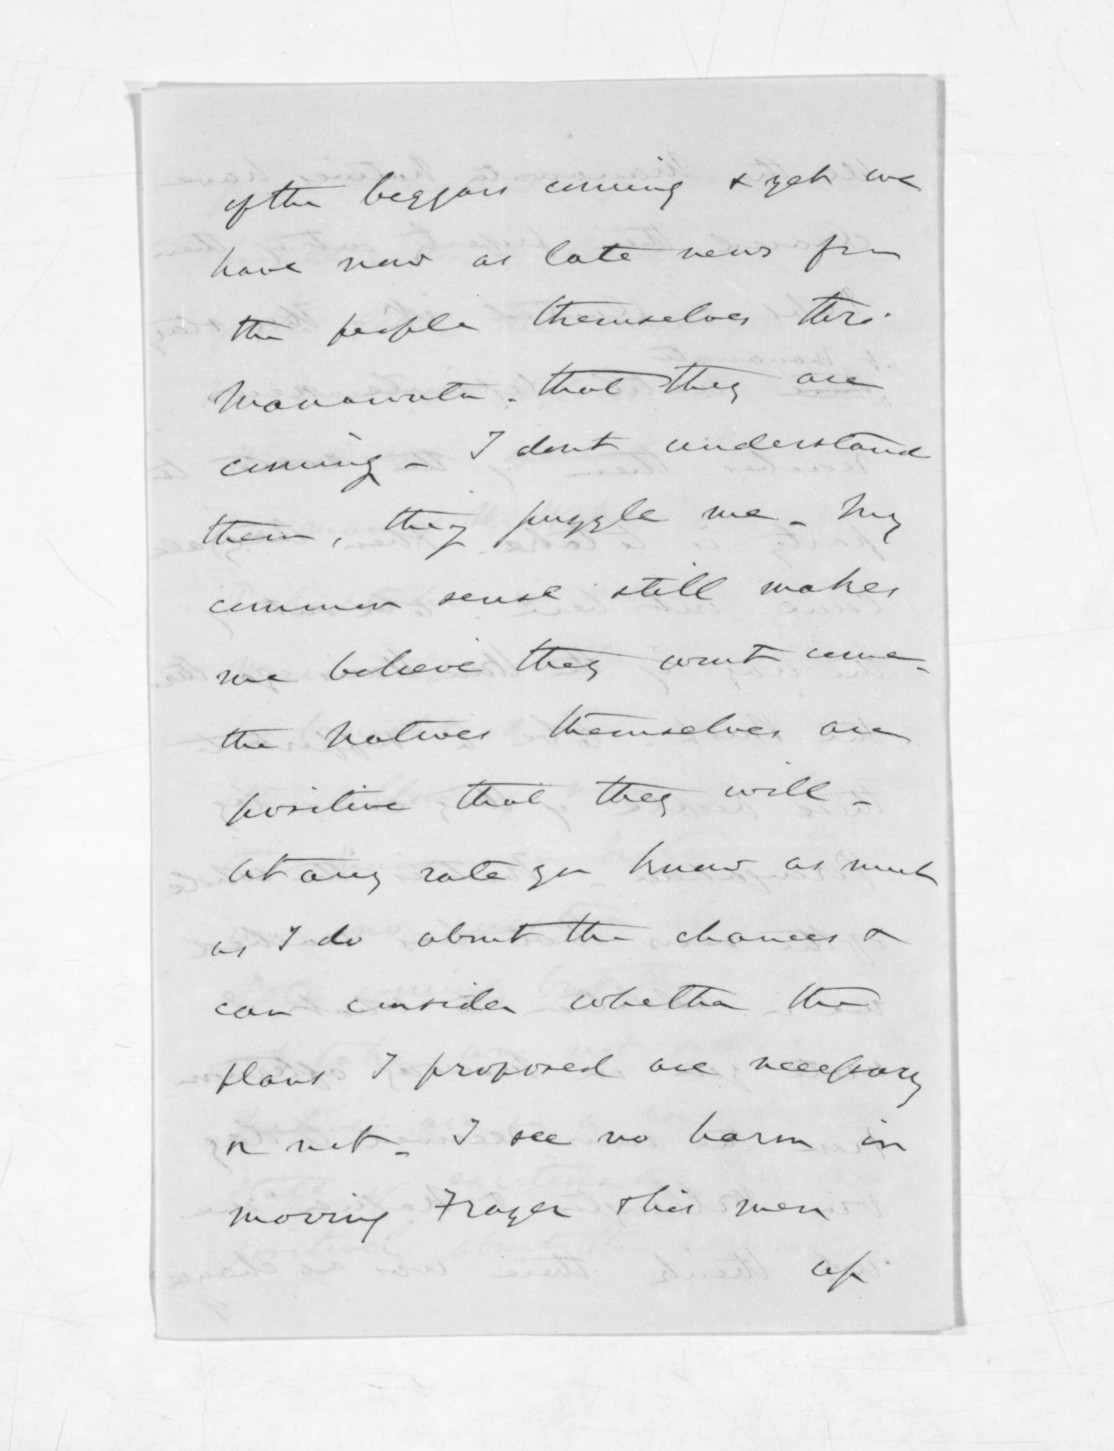 of the beggars coming & yet we
have now as late news from
the people themselves thro'
Manawatu. that they are
coming - I dont understand
them, they puzzle me - My
common sense still makes
me believe they wont come -
the Natives themselves are
positive that they will -
At any rate you know as much
as I do about the chances &
can consider whether the
plans I proposed are necessary
or not - I see no harm in
moving Frazer & his men
up